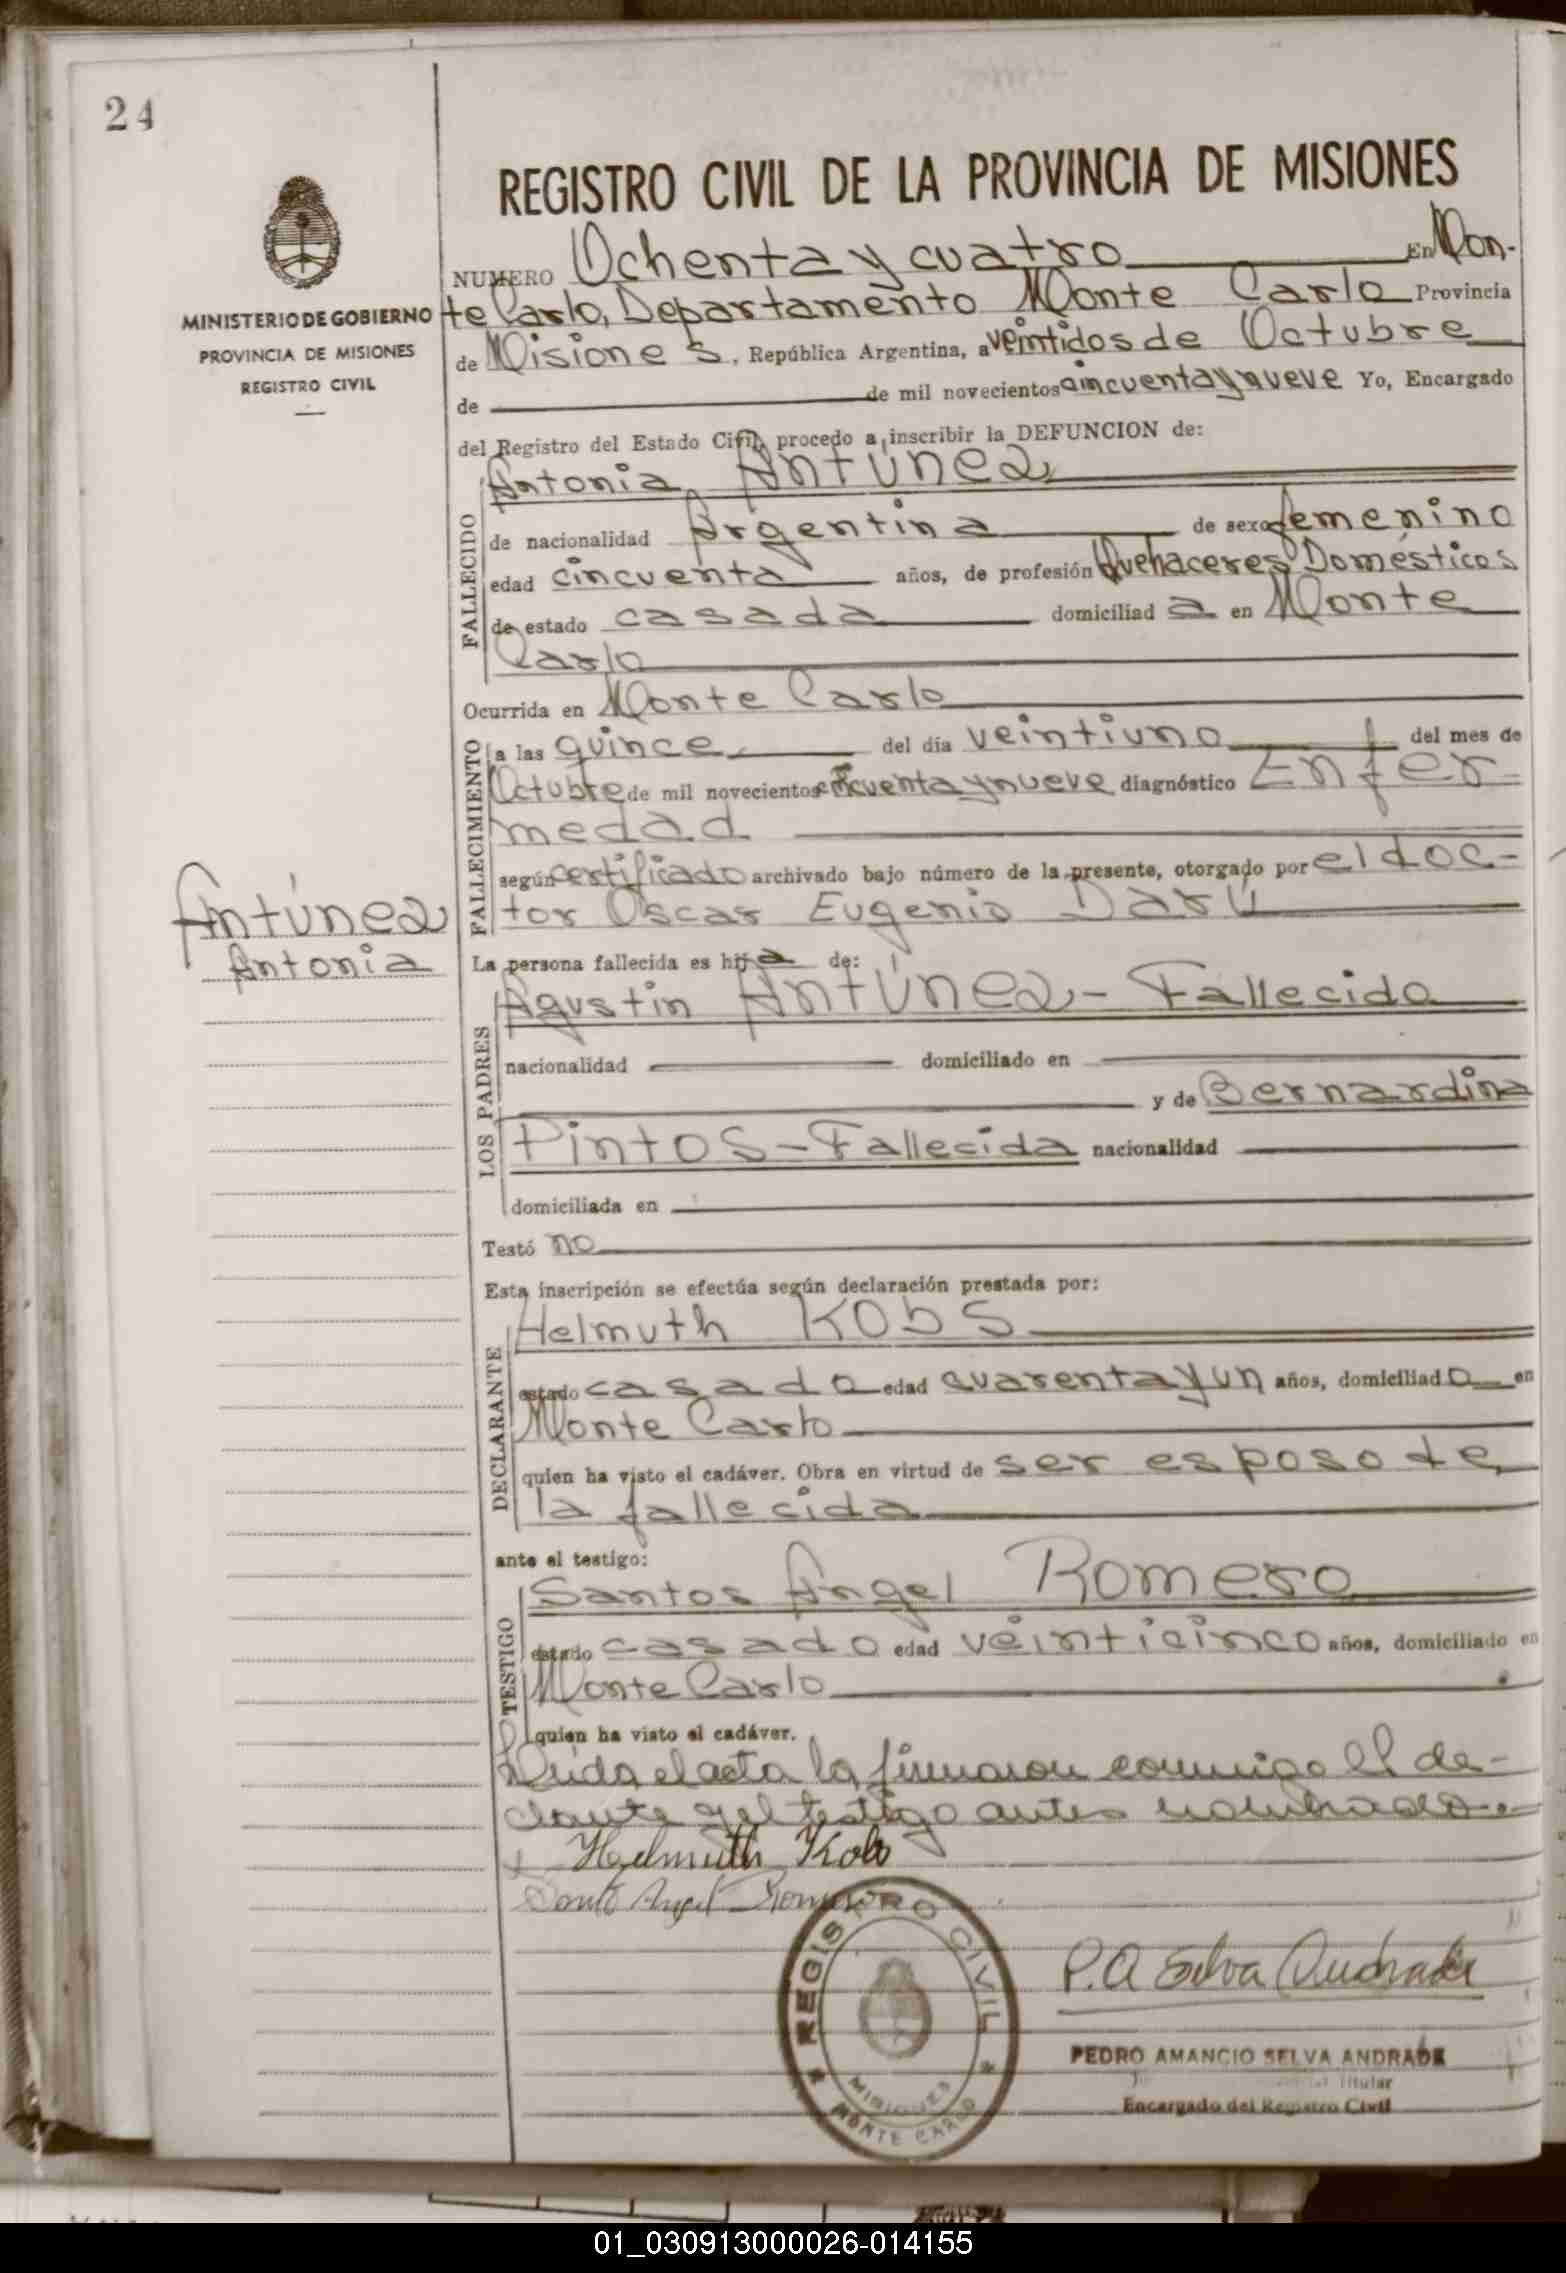 24
REGISTRO CIVIL DE LA PROVINCIA DE MISIONES
NUMERO Ochenta y cuatro En Mon-
MINISTERIO DE GOBIERNO
PROVINCIA DE MISIONES
REGISTRO CIVIL
te Carlo, Departamento Monte Carlo Provincia
de Misiones, República Argentina, a veintidos de Octubre
de de mil novecientos cincuenta y nueve Yo, Encargado
del Registro del Estado Civil, procedo a inscribir la DEFUNCION de:
FALLECIDO
Antonia Antúnez
de nacionalidad Argentina de sexo femenino
edad cincuenta años, de profesión Quehaceres Domésticos
de estado casada domiciliad a en Monte
Carlo
Ocurrida en Monte Carlo
FALLECIMIENTO
a las quince del día veintiuno del mes de
Octubre de mil novecientos cincuenta y nueve diagnóstico Enfer-
medad
según certificado archivado bajo número de la presente, otorgado por el doc-
tor Oscar Eugenio Darú
Antúnez
Antonia
La persona fallecida es hija de:
LOS PADRES
Agustin Antúnez - Fallecido
nacionalidad domiciliado en
y de Bernardina
Pintos - Fallecida nacionalidad
domiciliada en
Testó no
Esta inscripción se efectúa según declaración prestada por:
DECLARANTE
Helmuth Kobs
estado casado edad cuarenta y un años, domiciliado en
Monte Carlo
quien ha visto el cadáver. Obra en virtud de ser esposo de
la fallecida
ante el testigo:
TESTIGO
Santos Angel Romero
estado casado edad veinticinco años, domiciliado en
Monte Carlo
quien ha visto el cadáver.
Leida el acta la firmaron conmigo el de-
clarante y el testigo antes nombrado
Helmuth Kobs
Santos Angel Romero
REGISTRO CIVIL
MISIONES
MONTE CARLO
P. A Selva Andrade
PEDRO AMANCIO SELVA ANDRADE
Titular
Encargado del Registro Civil
01_030913000026-014155